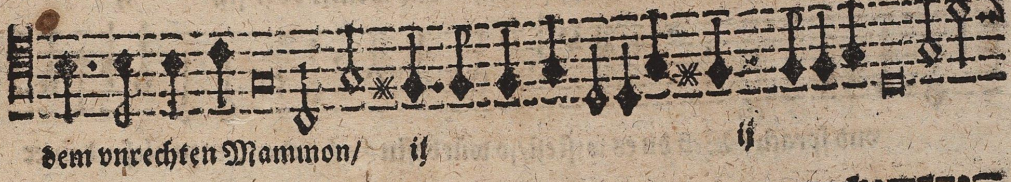 dem vnrechten Mammon/ ij ij